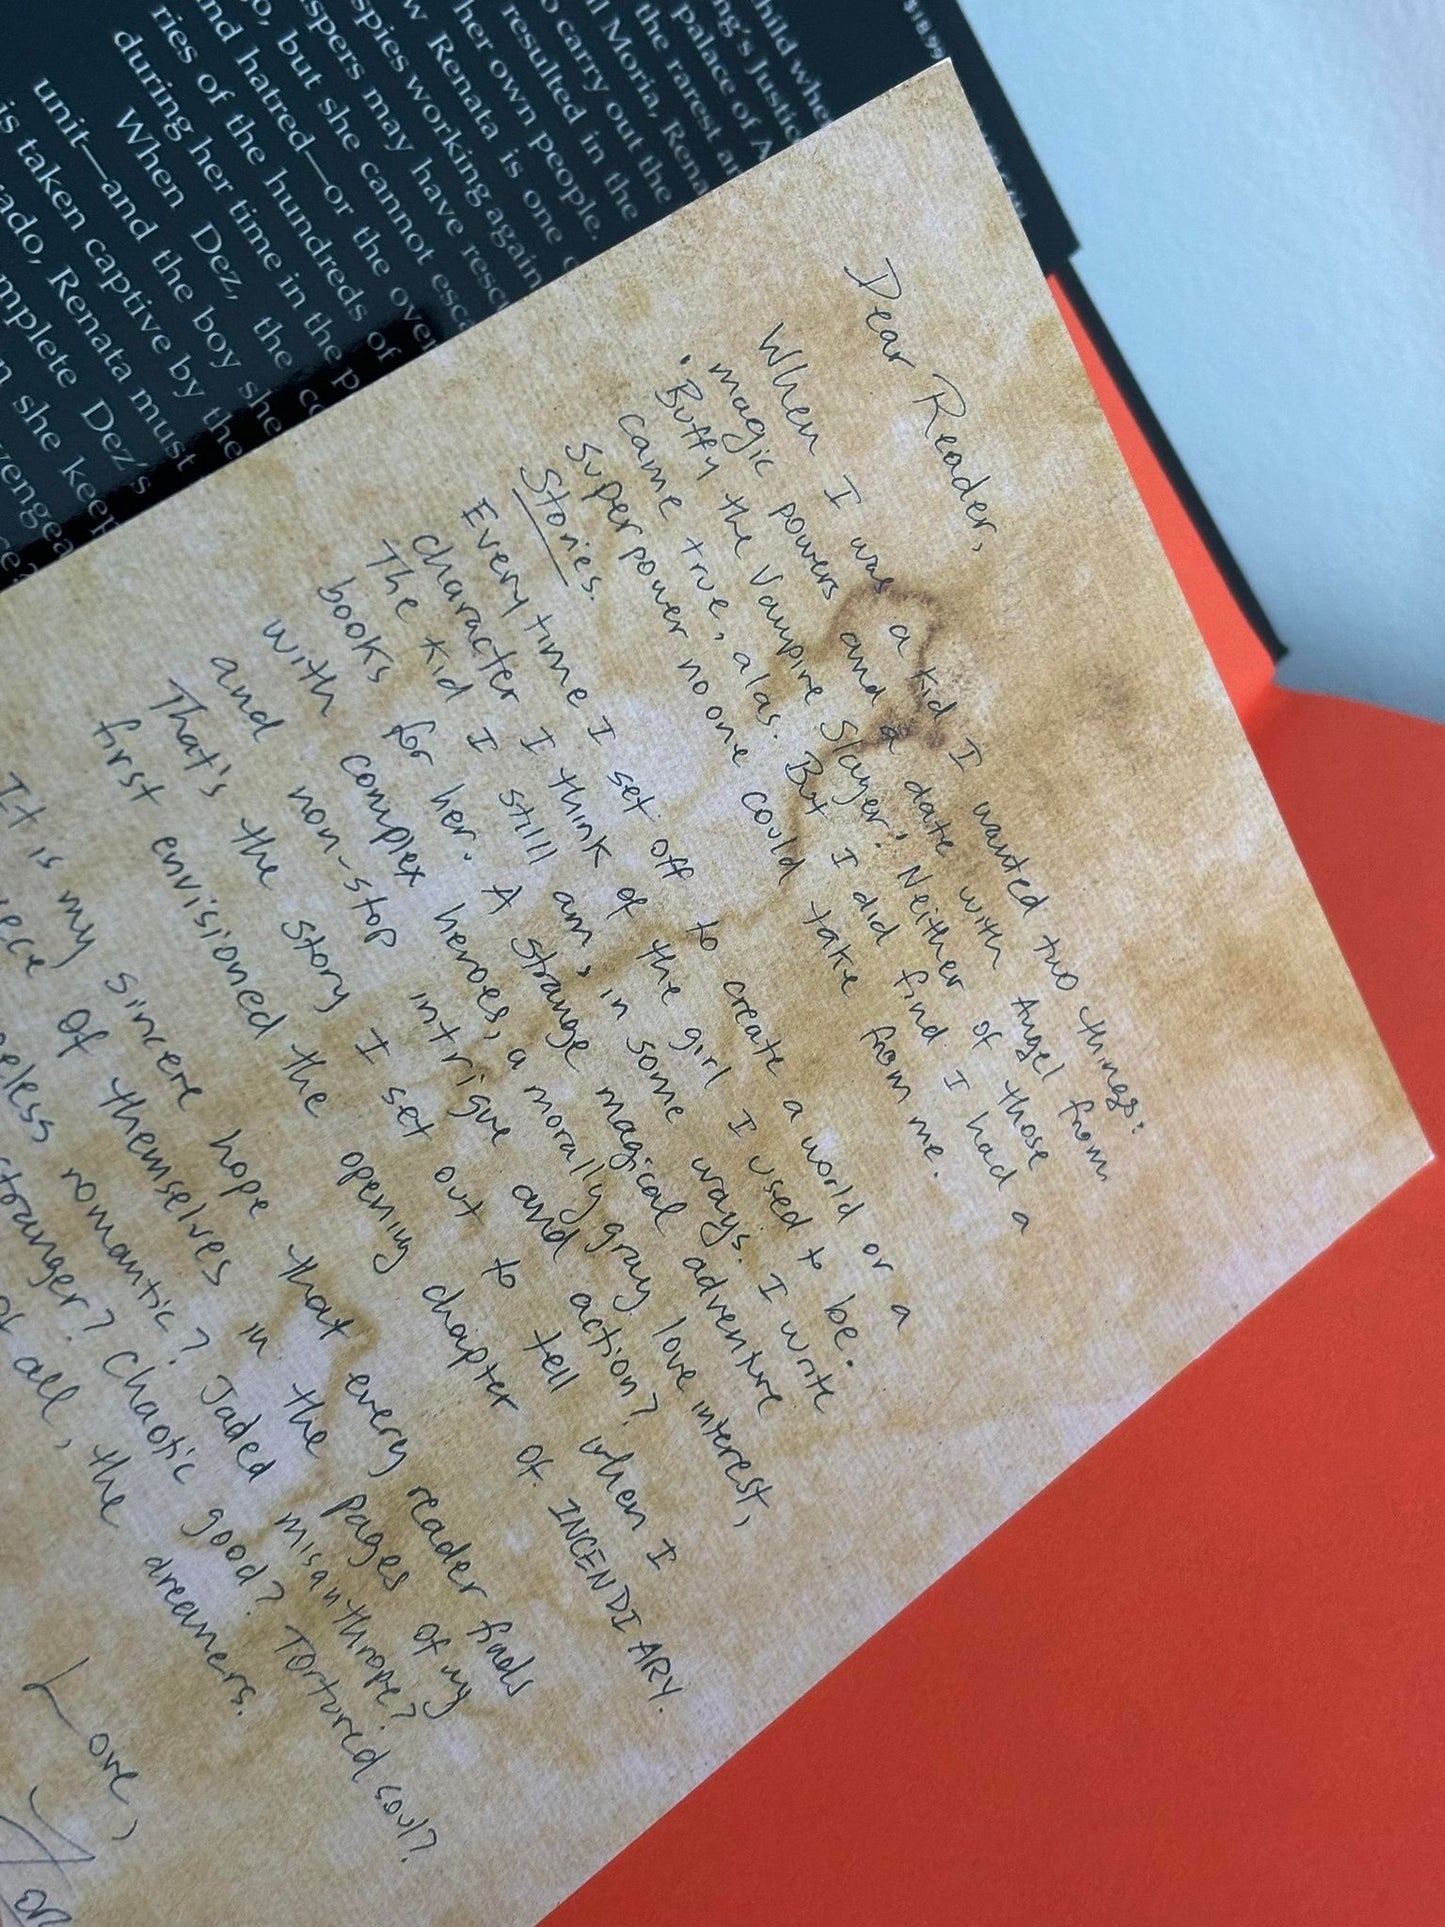 $18.99
hild whe
ng's Justic
palace of A
the rarest a
l Moria, Rena
o carry out the
resulted in the
her own people.
w Renata is one o
spies working again
spers may have resc
o, but she cannot esca
nd hatred—or the over
ries of the hundreds of
during her time in the p
When Dez, the co
unit—and the boy she
is taken captive by the
rado, Renata must
mplete Dez's
n she keep
vengea
Dear Reader,
When I was a kid I wanted two things:
magic powers and a date with Angel from
Buffy the Vampire Slayer. Neither of those
came true, alas. But I did find I had a
superpower no one could take from me.
Stories.
Every time I set off to create a world or a
character I think of the girl I used to be.
The kid I still am, in some ways. I write
books for her. A strange magical adventure
with complex heroes, a morally gray love interest,
and non-stop intrigue and action?
That's the story I set out to tell when I
first envisioned the opening chapter of INCENDIARY.
It is my sincere hope that every reader finds
iece of themselves in the pages of my
eless romantic? Jaded misanthrope?
stranger? Chaotic good? Tortured soul?
of all, the dreamers.
Love,
Zor